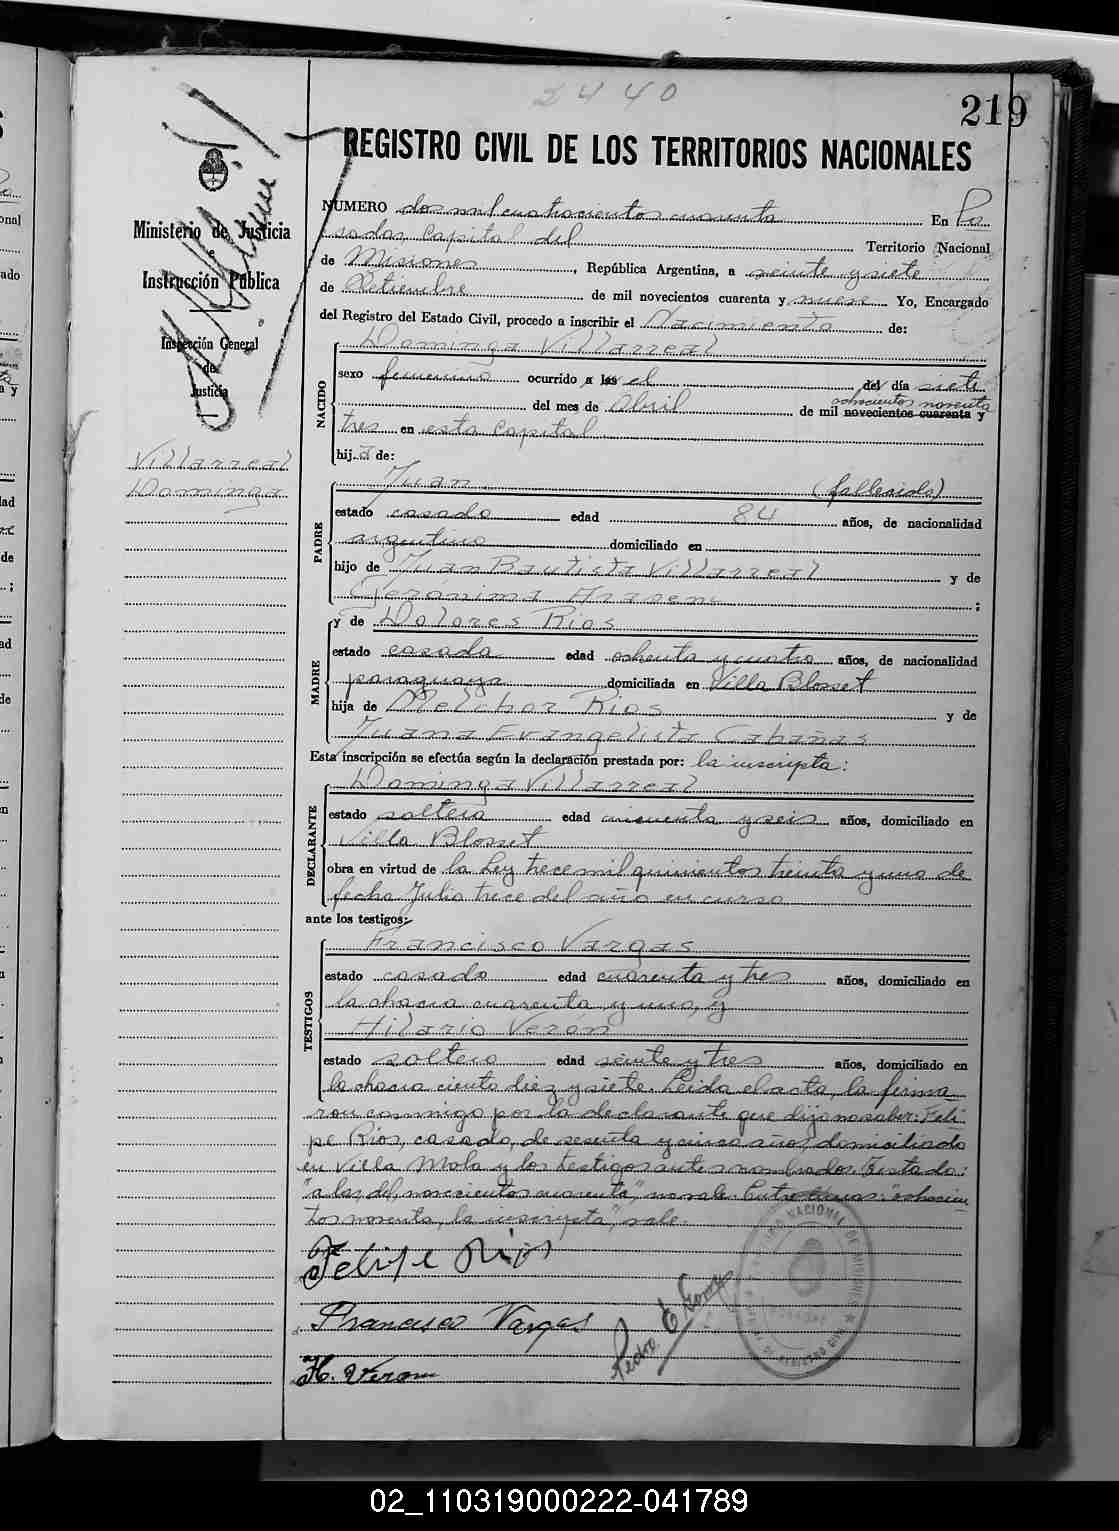 2440
219
REGISTRO CIVIL DE LOS TERRITORIOS NACIONALES
Ministerio de Justicia
e
Instrucción Pública
Inspección General
de
Justicia
Villarreal
Dominga
NUMERO dos mil cuatrocientos cuarenta En Po
sadas, Capital del Territorio Nacional
de Misiones, República Argentina, a veinte y siete
de Setiembre de mil novecientos cuarenta y nueve Yo, Encargado
del Registro del Estado Civil, procedo a inscribir el Nacimiento de:
NACIDO
Dominga Villarreal
sexo femenino ocurrido a las el del día siete
ochocientos noventa
del mes de Abril de mil novecientos cuarenta y
tres en esta Capital
hija de:
PADRE
Juan (fallecido)
estado casado edad 84 años, de nacionalidad
argentino domiciliado en
hijo de Juan Bautista Villarreal y de
Gerónima ;
MADRE
y de Dolores Rios
estado casada edad ochenta y cuatro años, de nacionalidad
paraguaya domiciliada en Villa Blosset
hija de Melchor Rios y de
Juana Evangelista Cabañas
Esta inscripción se efectúa según la declaración prestada por: la inscripta:
DECLARANTE
Dominga Villarreal
estado soltera edad cincuenta y seis años, domiciliado en
Villa Blosset
obra en virtud de la Ley trece mil quinientos treinta y uno de
fecha Julio trece del año en curso
ante los testigos:
TESTIGOS
Francisco Vargas
estado casado edad cuarenta y tres años, domiciliado en
la chacra cuarenta y uno, y
Hilario Verón
estado soltero edad veinte y tres años, domiciliado en
la chacra ciento diez y siete. Leida el acta, la firma-
ron conmigo por la declarante que dijo no saber: Feli-
pe Rios, casado, de sesenta y cinco años, domiciliado
en Villa Mola y los testigos antes nombrados. Testado:
"a las, del, novecientos cuarenta", no vale. Entre lineas: "ochocien
tos noventa, la inscripta", vale.
Felipe Rios
Francisco Vargas
H. Veron
Pedro E
02_110319000222-041789